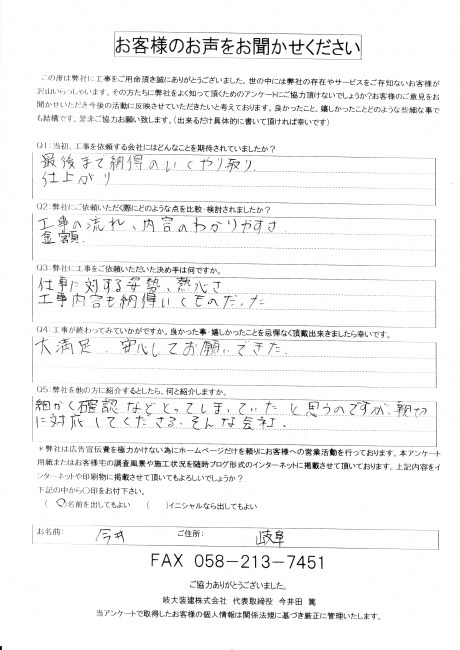 お客様のお声をお聞かせください
この度は弊社に工事をご用命頂き誠にありがとうございました。世の中には弊社の存在やサービスをご存知ないお客様が
沢山いらっしゃいます。その方たちに弊社をよく知って頂くためのアンケートにご協力頂けないでしょうか?お客様のご意見をお
聞かせいただき今後の活動に反映させていただきたいと考えております。良かったこと、嬉しかったことどのような些細な事で
も結構です。是非ご協力お願い致します。(出来るだけ具体的に書いて頂ければ幸いです)
Q1:当初、工事を依頼する会社にはどんなことを期待されていましたか?
最後まで納得のいくやり取り
仕上がり
Q2:弊社にご依頼いただく際にどのような点を比較・検討されましたか?
工事の流れ、内容のわかりやすさ
金額.
Q3:弊社に工事をご依頼いただいた決め手は何ですか。
仕事に対する姿勢、熱心さ
工事内容も納得いくものだった
Q4:工事が終わってみていかがですか。良かった事・嬉しかったことを忌憚なく頂戴出来ましたら幸いです。
大満足、安心してお願いできた.
Q5:弊社を他の方に紹介するとしたら、何と紹介しますか。
細かく確認などとってしまっていたと思うのですが、親切
に対応してくださる.そんな会社.
*弊社は広告宣伝費を極力かけない為にホームページだけを頼りにお客様への営業活動を行っております。本アンケート
用紙またはお客様宅の調査風景や施工状況を随時ブログ形式のインターネットに掲載させて頂いております。上記内容をイ
ンターネットや印刷物に掲載させて頂いてもよろしいでしょうか?
下記の中から○印をお付下さい。
(○)名前を出してもよい ( )イニシャルなら出してもよい
お名前: 今井 ご住所: 岐阜
FAX 058-213-7451
ご協力ありがとうございました。
岐大装建株式会社 代表取締役 今井田 篤
当アンケートで取得したお客様の個人情報は関係法規に基づき厳正に管理いたします。